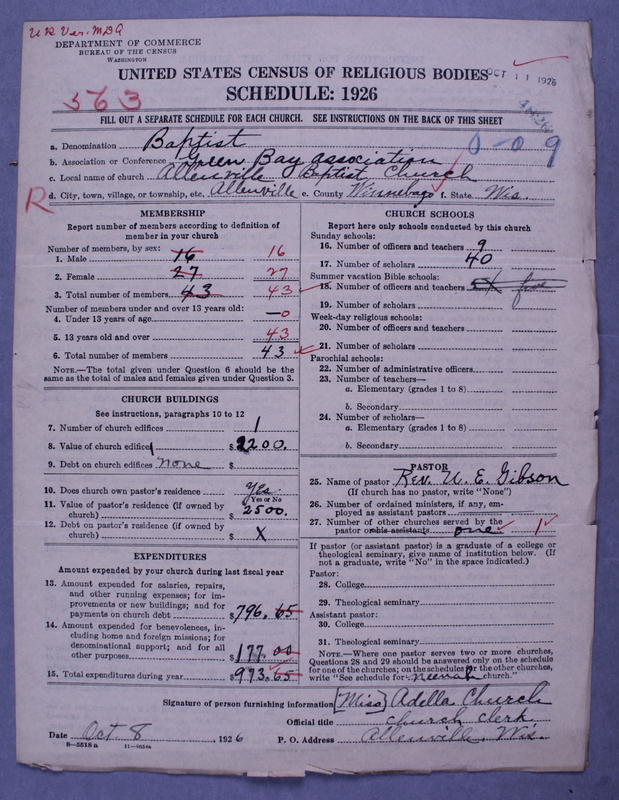 U R Ver. MDA
DEPARTMENT OF COMMERCE
BUREAU OF THE CENSUS
WASHINGTON
UNITED STATES CENSUS OF RELIGIOUS BODIES
OCT 11 1926
SCHEDULE: 1926
563
FILL OUT A SEPARATE SCHEDULE FOR EACH CHURCH. SEE INSTRUCTIONS ON THE BACK OF THIS SHEET
a. Denomination Baptist
0-09
b. Association or Conference Green Bay association
c. Local name of church Allenville Baptist Church
R d. City, town, village, or township, etc. Allenville e. County Winnebago f. State Wis.
MEMBERSHIP
Report number of members according to definition of
member in your church
Number of members, by sex:
1. Male 16 16
2. Female 27 27
3. Total number of members 43 43
Number of members under and over 13 years old:
4. Under 13 years of age —0
5. 13 years old and over 43
6. Total number of members 43
NOTE.—The total given under Question 6 should be
same as the total of males and females given under Question 3.
CHURCH BUILDINGS
See instructions, paragraphs 10 to 12
7. Number of church edifices 1
8. Value of church edifice $2200.
9. Debt on church edifices none $
10. Does church own pastor's residence Yes.
Yes or No
11. Value of pastor's residence (if owned by
church) 2500.
12. Debt on pastor's residence (if owned by
church) $ X
EXPENDITURES
Amount expended by your church during last fiscal year
13. Amount expended for salaries, repairs,
and other running expenses; for im-
provements or new buildings; and for
payments on church debt $796.65
14. Amount expended for benevolences, in-
cluding home and foreign missions; for
denominational support; and for all
other purposes $177.00
15. Total expenditures during year $973.65
CHURCH SCHOOLS
Report here only schools conducted by this church
Sunday schools:
16. Number of officers and teachers 9
17. Number of scholars 40
Summer vacation Bible schools:
18. Number of officers and teachers
19. Number of scholars
Week-day religious schools:
20. Number of officers and teachers
21. Number of scholars
Parochial schools:
22. Number of administrative officers
23. Number of teachers—
a. Elementary (grades 1 to 8)
b. Secondary
24. Number of scholars—
a. Elementary (grades 1 to 8)
b. Secondary
PASTOR
25. Name of pastor Rev. U. E. Gibson
(If church has no pastor, write "None")
26. Number of ordained ministers, if any, em-
ployed as assistant pastors
27. Number of other churches served by the
pastor or his assistants one 1
If pastor (or assistant pastor) is a graduate of a college or
theological seminary, give name of institution below. (If
not a graduate, write "No" in the space indicated.)
Pastor:
28. College
29. Theological seminary
Assistant pastor:
30. College
31. Theological seminary
NOTE.—Where one pastor serves two or more churches,
Questions 28 and 29 should be answered only on the schedule
for one of the churches; on the schedules for the other churches,
write "See schedule for Neenah church."
Signature of person furnishing information (Miss) Adella Church
Official title church clerk.
Date Oct 8, 1926 P. O. Address Allenville, Wis.
8—5518 a